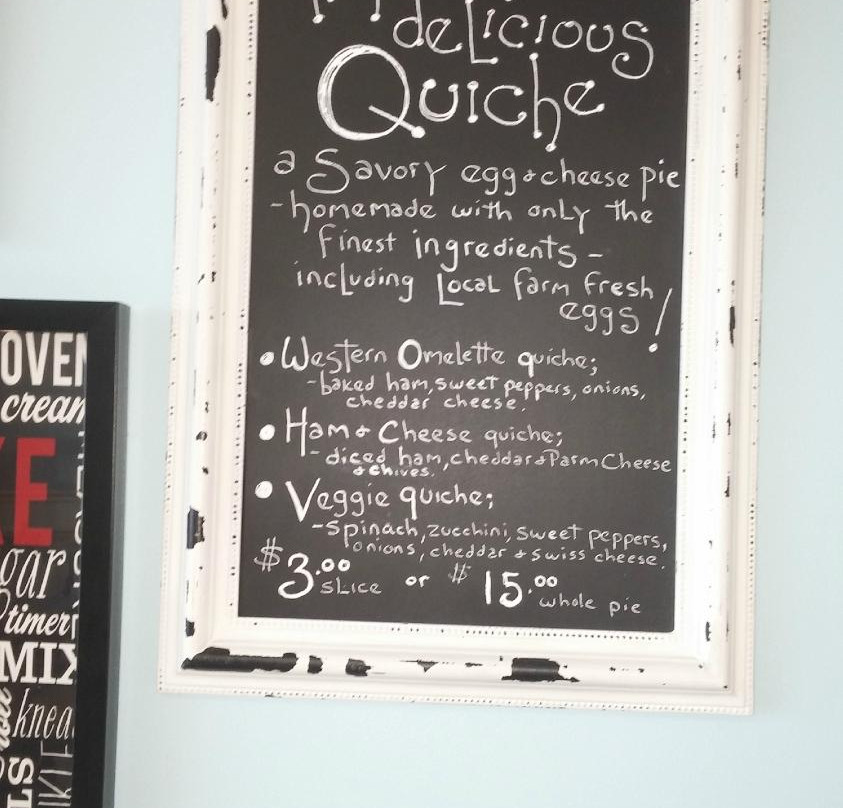 deLicious
Quiche
a Savory egg & cheese pie
- homemade with only the
finest ingredients -
including Local farm fresh
eggs!
• Western Omelette quiche;
- baked ham, sweet peppers, onions,
cheddar cheese.
• Ham & Cheese quiche;
- diced ham, cheddar & Parm Cheese
& chives.
• Veggie quiche;
- Spinach, zucchini, sweet peppers,
onions, cheddar & swiss cheese.
$3.00 sLice or $15.00 whole pie
OVEN
cream
KE
gar
timer
MIX
knea
LS